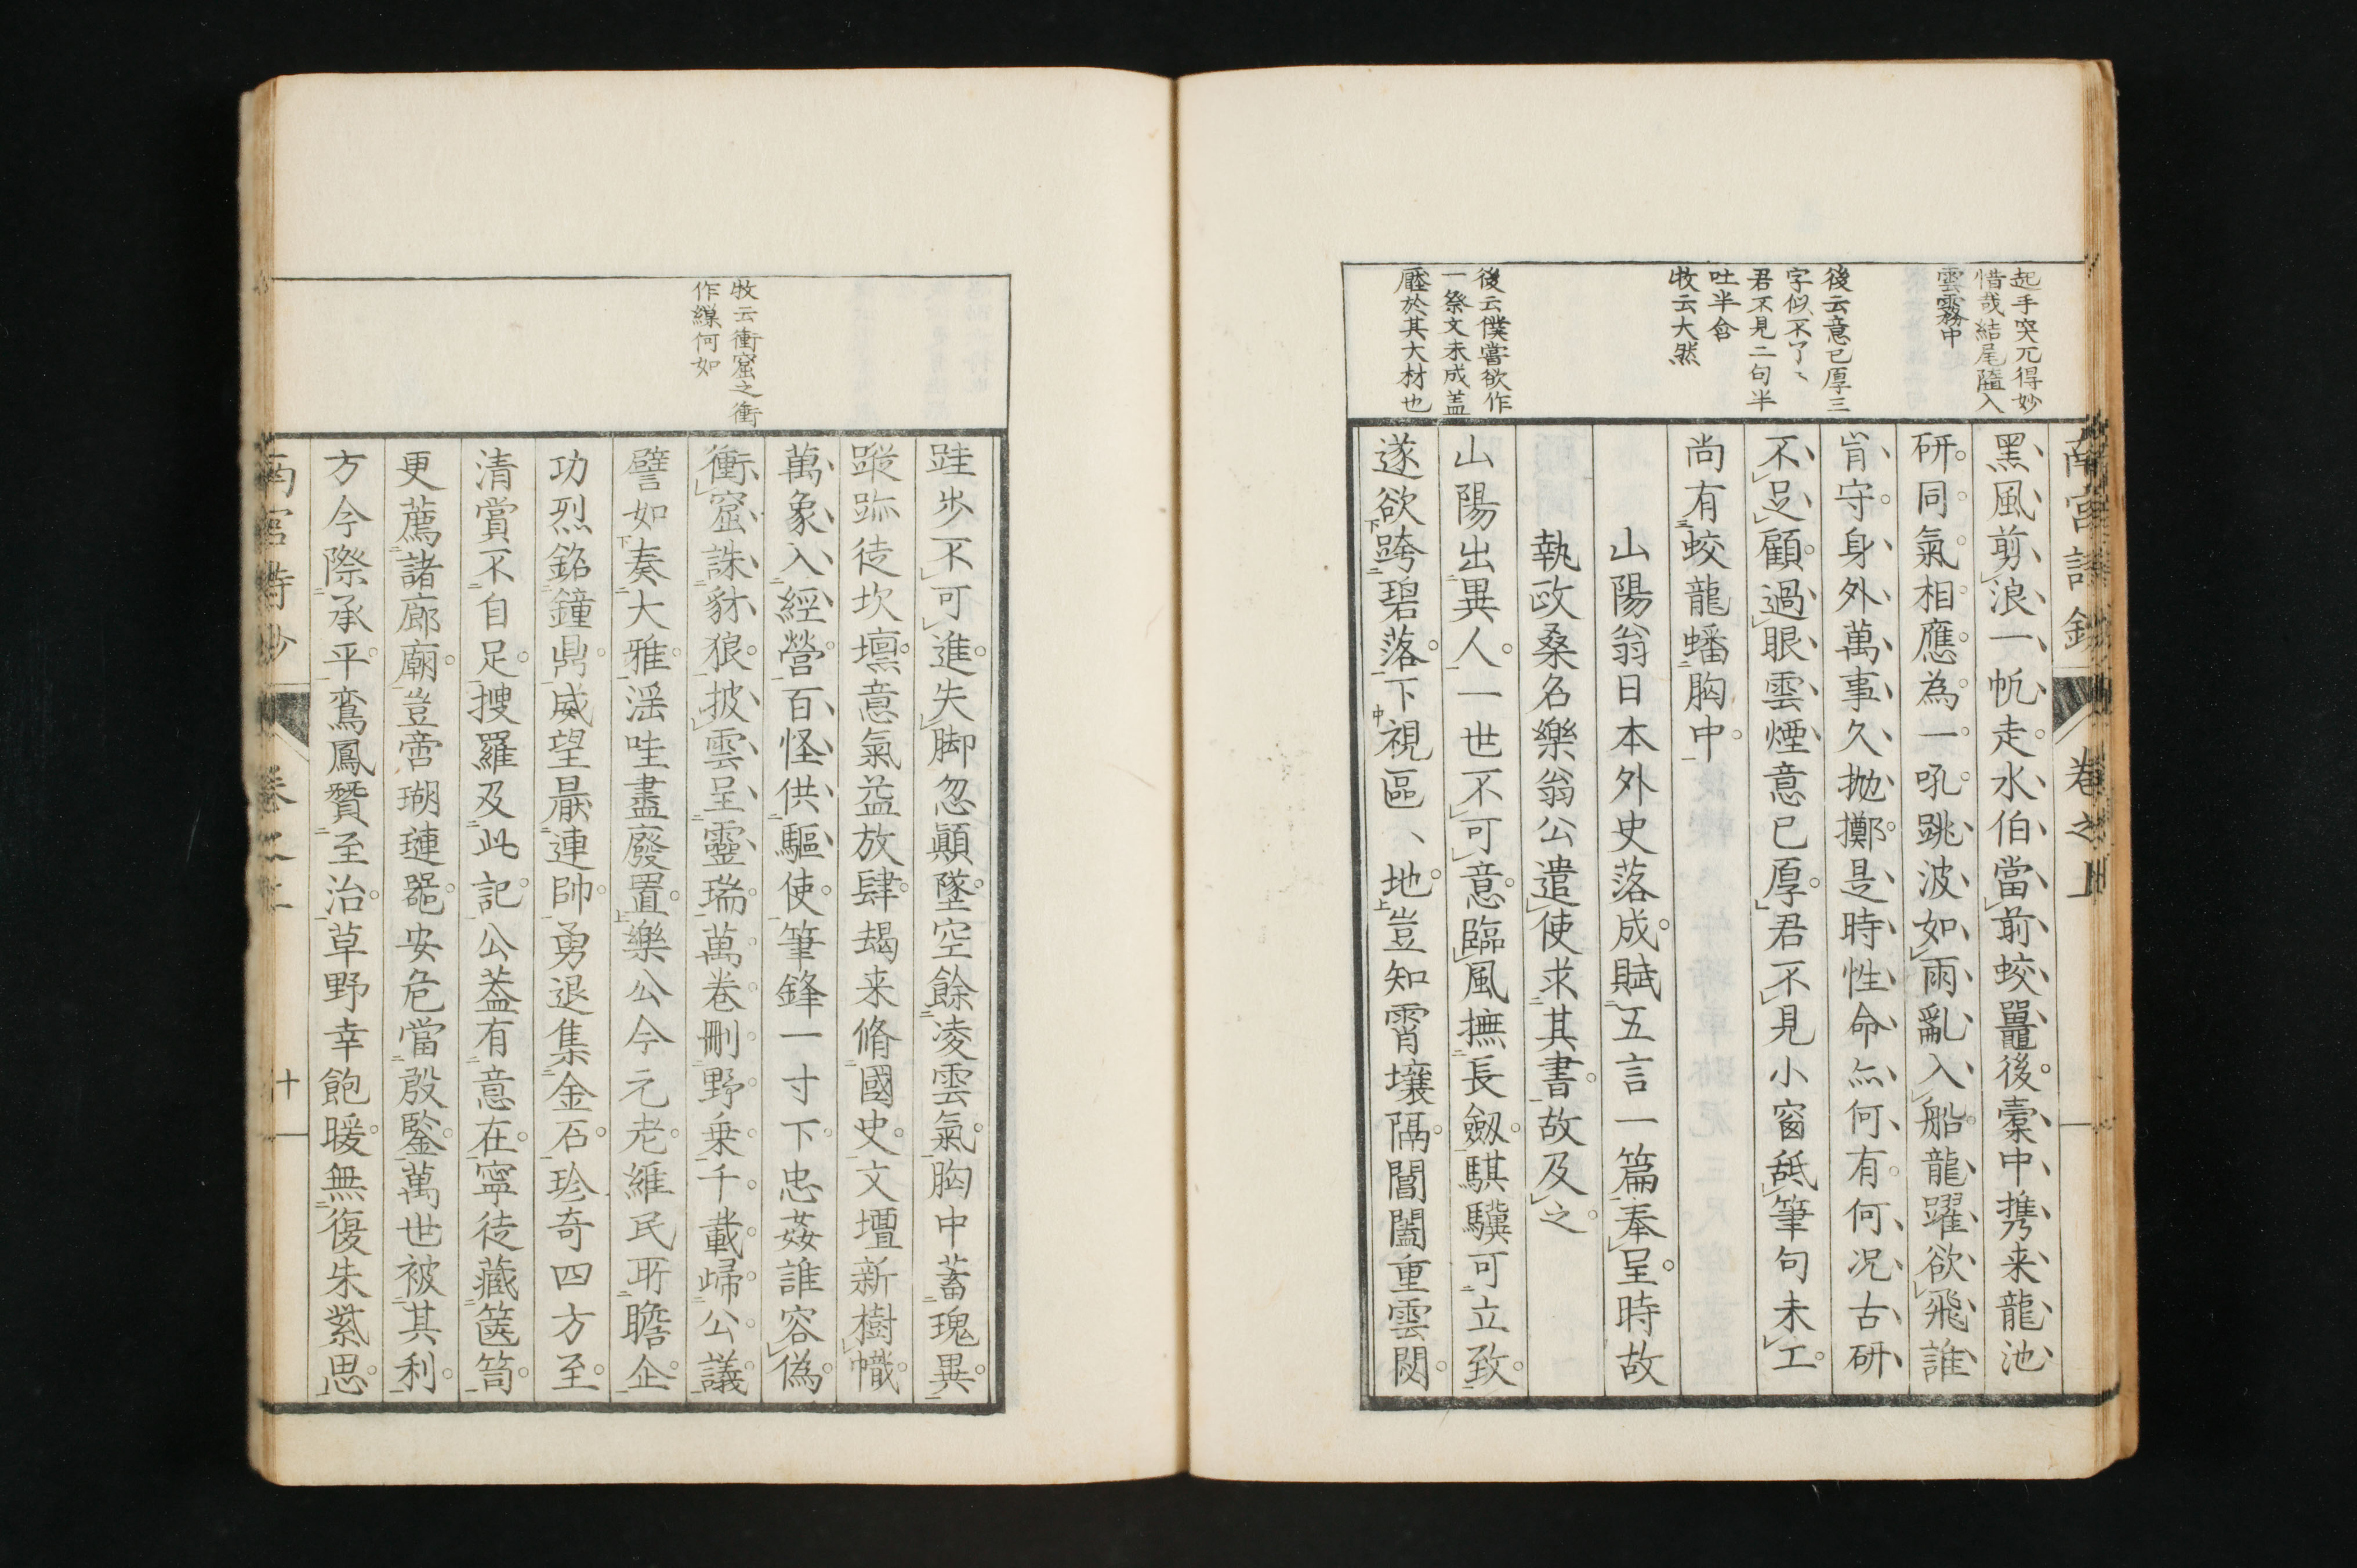 起手突兀得妙
惜哉結尾墮入
雲霧中
後云意已厚三
字似不了〻
君不見二句半
吐半含
牧云大然
後云僕嘗欲作
一祭文未成盖
壓於其大材也
南宮詩鈔 卷之上
黑風剪浪一帆走水伯當前蛟鼉後橐中携来龍池
研同氣相應為一吼跳波如雨亂入船龍躍欲飛誰
肯守身外萬事久抛擲是時性命亦何有何况古研
不足顧過眼雲煙意已厚君不見小窗舐筆句未工
尚有蛟龍蟠胸中
山陽翁日本外史落成賦五言一篇奉呈時故
執政桑名樂翁公遣使求其書故及之
山陽出異人一世不可意臨風撫長劔騏驥可立致
遂欲跨碧落下視區〻地豈知霄壤隔閶闔重雲閟
牧云衝窟之衝
作緤何如
跬步不可進失脚忽顚墜空餘凌雲氣胸中蓄瑰異
蹤跡徒坎壈意氣益放肆朅来脩國史文壇新樹幟
萬象入經營百怪供驅使筆鋒一寸下忠姦誰容偽
衝窟誅豺狼披雲呈靈瑞萬卷刪野乗千載歸公議
譬如奏大雅滛哇盡廢置樂公今元老維民所瞻企
功烈銘鐘鼎威望厭連帥勇退集金石珍奇四方至
清賞不自足搜羅及此記公葢有意在寧徒藏篋笥
更薦諸廊廟豈啻瑚璉器安危當殷鑒萬世被其利
方今際承平鸞鳳賛至治草野幸飽暖無復朱紫思
南宮詩鈔 卷之上 十